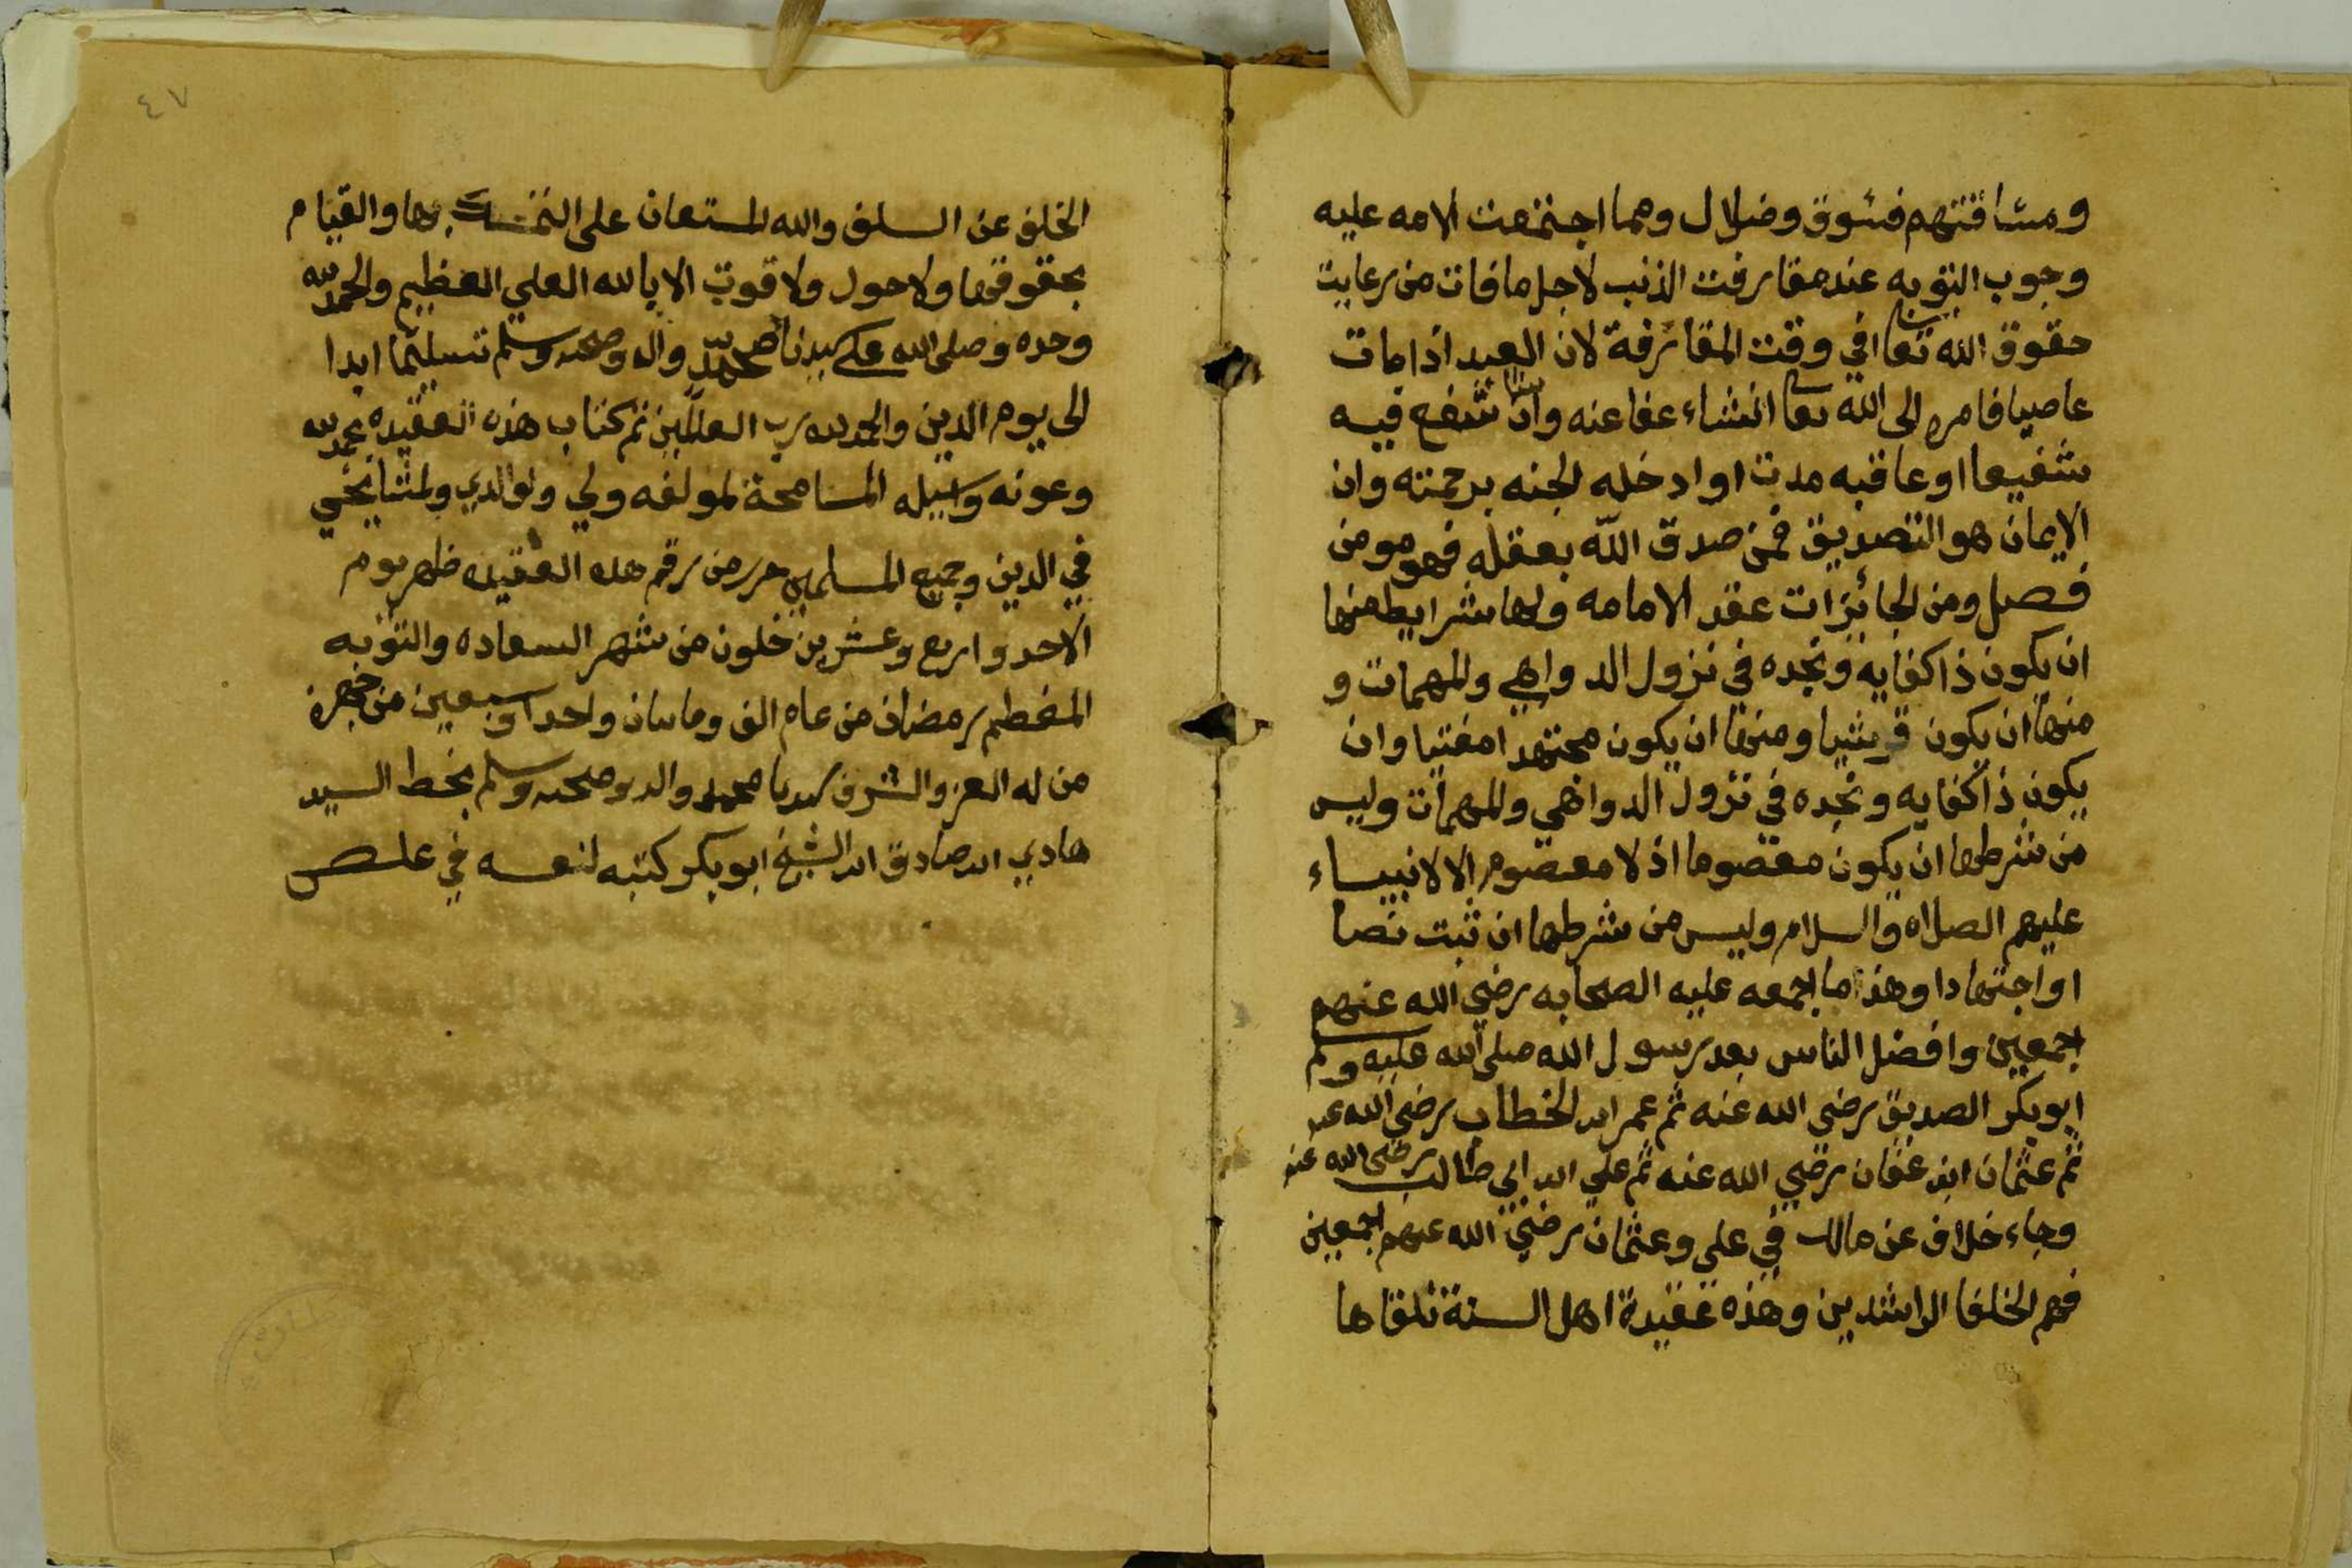 ومشاققتهم فسوق وضلال ومما اجتمعت الامه عليه
وجوب التوبه عند مقارفت الذنب لاجل ما فات من رعايت
حقوق الله تعالى في وقت المقارفة لان العبد اذا مات
عاصيا فامره الى الله تعا انشاء عفا عنه وان شفع فيه
شفيعا او عاقبه مدت او ادخله الجنه برحمته وان
الايمان هو التصديق فمن صدق الله بعقله فهو مومن
فصل ومن الجائزات عقد الامامه ولها شرايط منها
ان يكون ذا كفايه ونجده في نزول الدواهي والمهمات و
منها ان يكون قريشيا ومنها ان يكون مجتهدا مفتيا وان
يكون ذا كفايه ونجده في نزول الدواهي والمهمات وليس
من شرطها ان يكون معصوما اذ لا معصوم الا الانبياء
عليهم الصلاه والسلام وليس من شرطها ان ثبت نصا
او اجتهادا وهذا ما اجمعه عليه الصحابه رضي الله عنهم
اجمعين وافضل الناس بعد رسول الله صلى الله عليه وسلم
ابو بكر الصديق رضي الله عنه ثم عمر ابن الخطاب رضي الله عنه
ثم عثمان ابن عفان رضي الله عنه ثم علي ابن ابي طالب رضي الله عنه
وجاء خلاف عن مالك في علي وعثمان رضي الله عنهم اجمعين
فهم الخلفا الراشدين وهذه عقيدة اهل السنة تلقاها
٤٧
الخلف عن السلف والله المستعان على التمسك بها والقيام
بحقوقها ولا حول ولا قوت الا بالله العلي العظيم والحمد لله
وحده وصلى الله على سيدنا محمد واله وصحبه وسلم تسليما ابدا
الى يوم الدين والحمد لله رب العالمين تم كتاب هذه العقيده بحمد لله
وعونه المسامحة لمولفه ولي ولوالدي ولمشايخي
في الدين وجميع المسلمين حرر من رقم هذه العقيده ظهر يوم
الاحد واربع وعشرين خلون من شهر السعاده والتوبه
المعظم رمضان من عام الف وماتان واحد وسبعين من هجرة
من له العز والشرف سيدنا محمد واله وصحبه وسلم بخط السيد
هادي ابن صادق ابن الشيخ ابو بكر كتبه لنفسه في